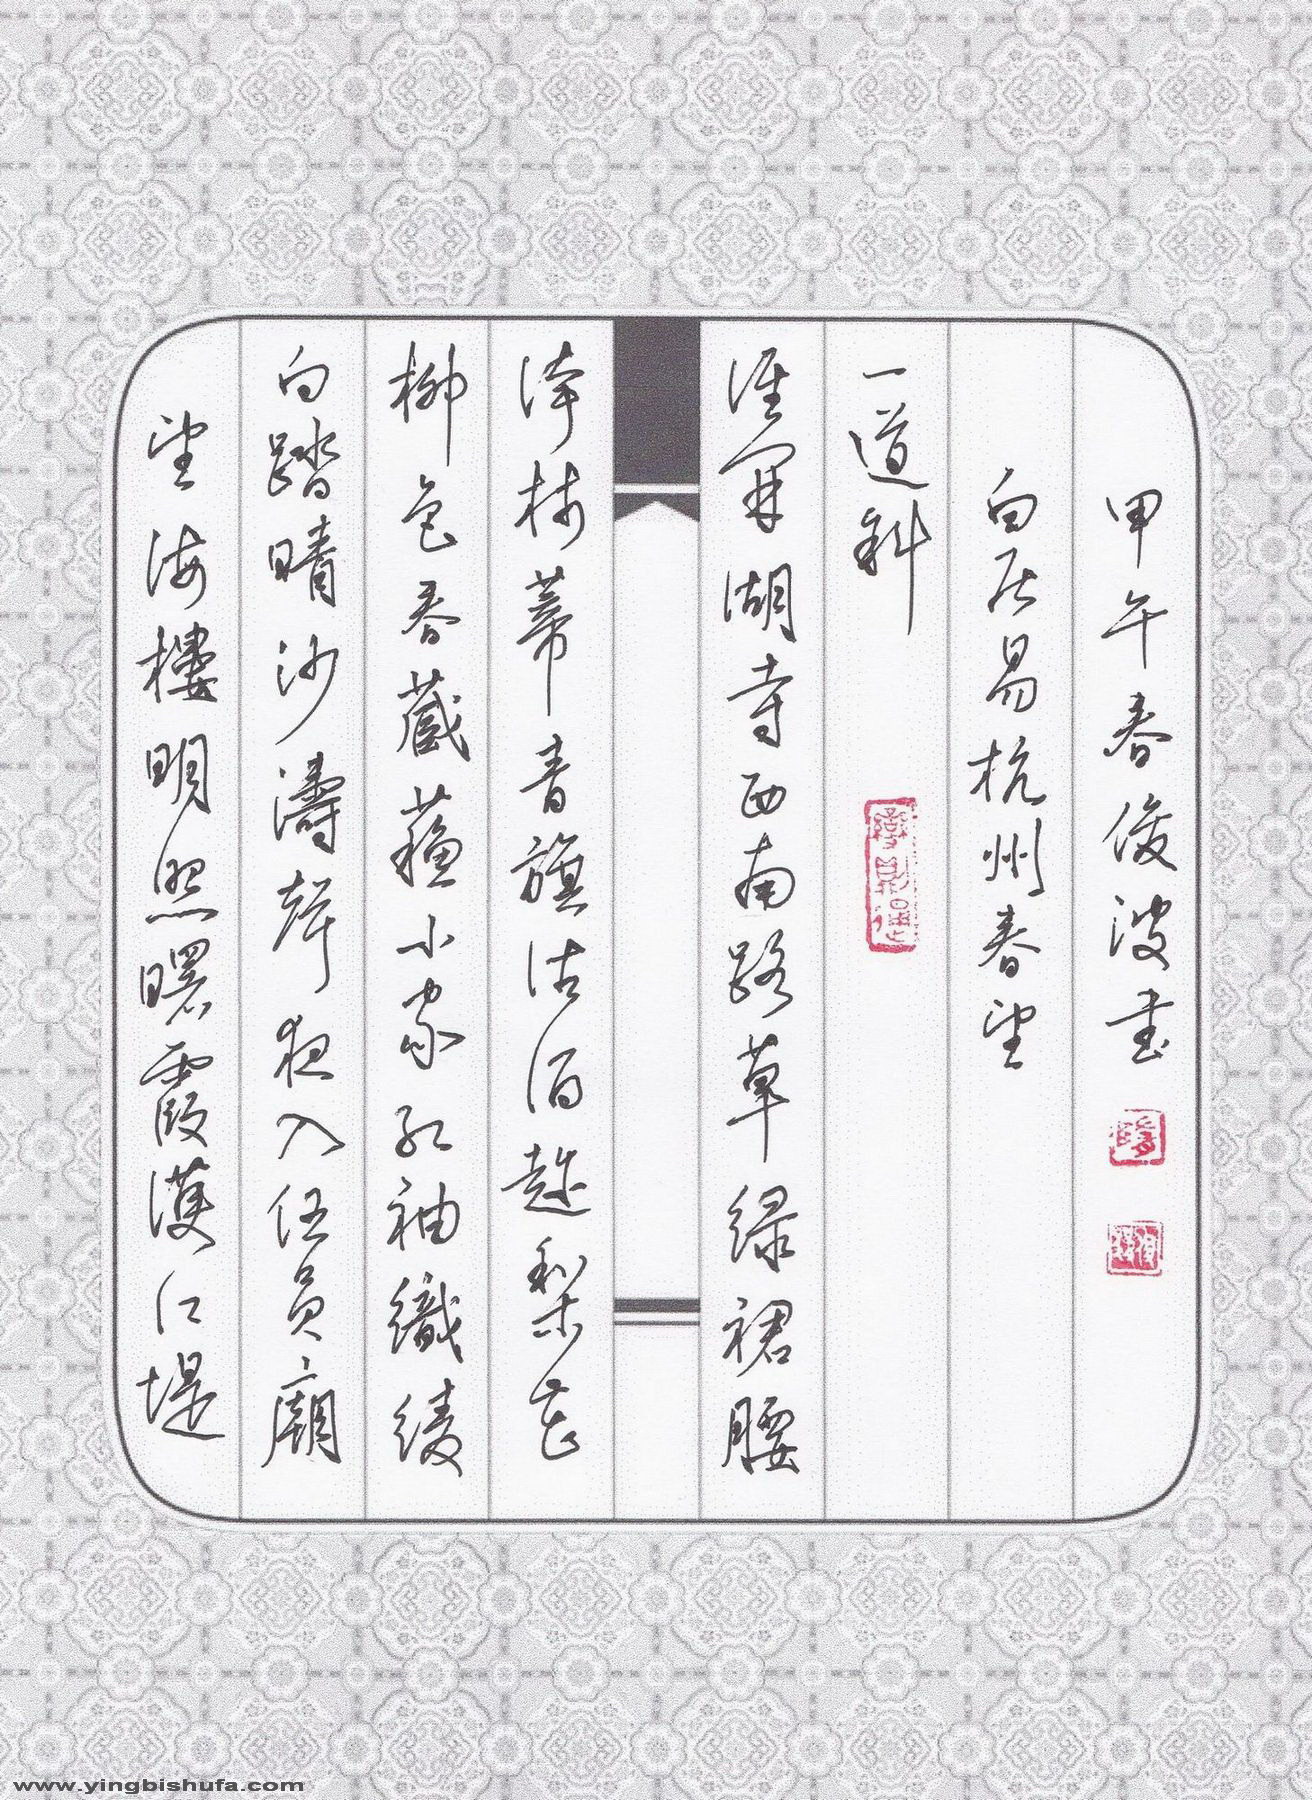 望海樓明照曙霞護江堤
白踏晴沙濤聲夜入伍員廟
柳色春藏蘇小家紅袖織綾
誇柿蒂青旗沽酒趁梨花
誰開湖寺西南路草綠裙腰
一道斜
白居易杭州春望
甲午春俊波書
www.yingbishufa.com